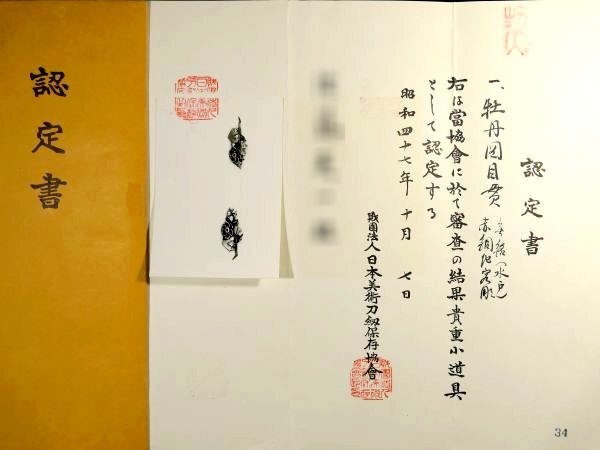 認定書
認定書
一、牡丹図目貫
無銘(水戸)
赤銅地容彫
右は當協會に於て審査の結果貴重小道具
として認定する
昭和四十七年十月七日
財団法人日本美術刀剱保存協會
34